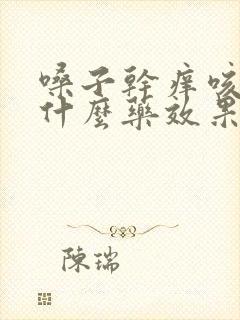 嗓子幹痒咳
什麼藥效果
陳瑞